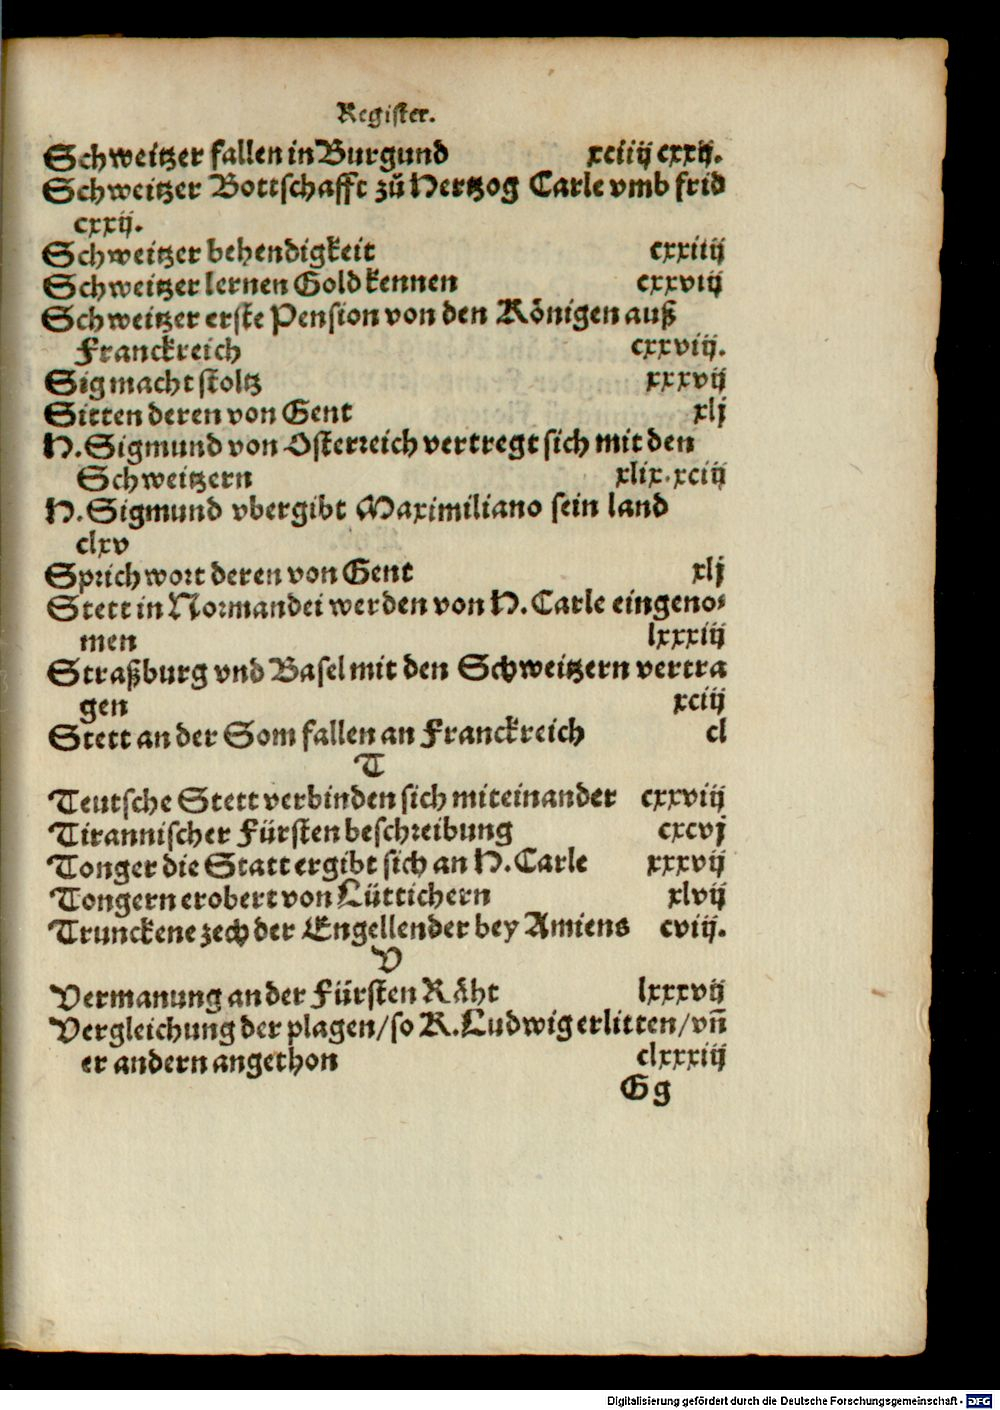 Register.
Schweitzer fallen in Burgund xciiij cxxij.
Schweitzer Bottschafft zů Hertzog Carle vmb frid
cxxij.
Schweitzer behendigkeit cxxiiij
Schweitzer lernen Gold kennen cxxviij
Schweitzer erste Pension von den Königen auß
Franckreich cxxviij.
Sig macht stoltz xxxvij
Sitten deren von Gent xlj
H. Sigmund von Osterreich vertregt sich mit den
Schweitzern xlix. xciij
H. Sigmund vbergibt Maximiliano sein land
clxv
Sprichwort deren von Gent xlj
Stett in Normandei werden von H. Carle eingeno⸗
men lxxxiij
Straßburg vnd Basel mit den Schweitzern vertra
gen xciij
Stett an der Som fallen an Franckreich cl
T
Teutsche Stett verbinden sich miteinander cxxviij
Tirannischer Fürsten beschreibung cxcvj
Tonger die Statt ergibt sich an H. Carle xxxvij
Tongern erobert von Lüttichern xlvij
Trunckene zech der Engellender bey Amiens cviij.
V
Vermanung an der Fürsten Räht lxxxvij
Vergleichung der plagen/so K. Ludwig erlitten/vn̄
er andern angethon clxxxiij
Gg
Digitalisierung gefördert durch die Deutsche Forschungsgemeinschaft - DFG